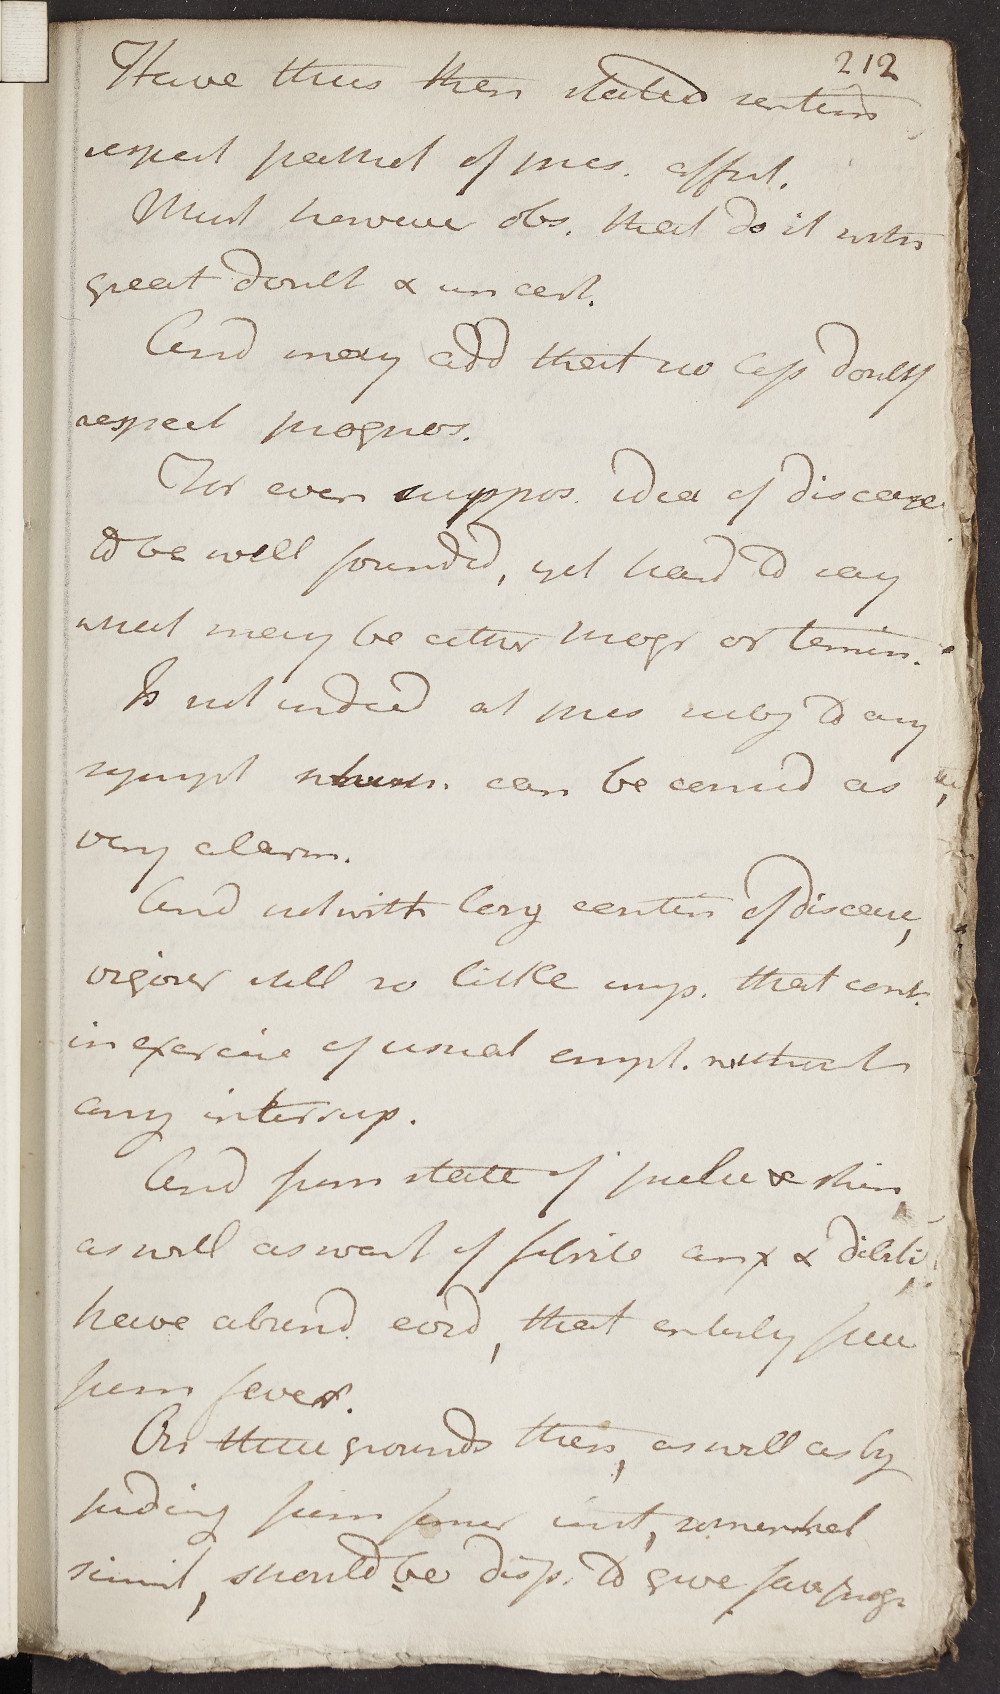 212
Have thus then stated sentim
respect pathol of pres. affect.
Must however obs. that do it with
great doubt & uncert.
And may add that no less doubts
respect prognos.
For even suppos. idea of disease
to be well founded, yet hard to say
what may be either progr or termin.
Is not indeed at pres subj to any
sympt whch. can be consid as
very alarm.
And notwith long contin of disease,
vigour still so little imp. that cont.
in exercise of usual empl. without
any interrup.
And from state of pulse & skin,
as well as want of febrile anx & debili
have abund evid, that entirely free
from fever.
On these grounds then, as well as by
judging from former inst, somewhat
simil, should be disp. to give fav progn